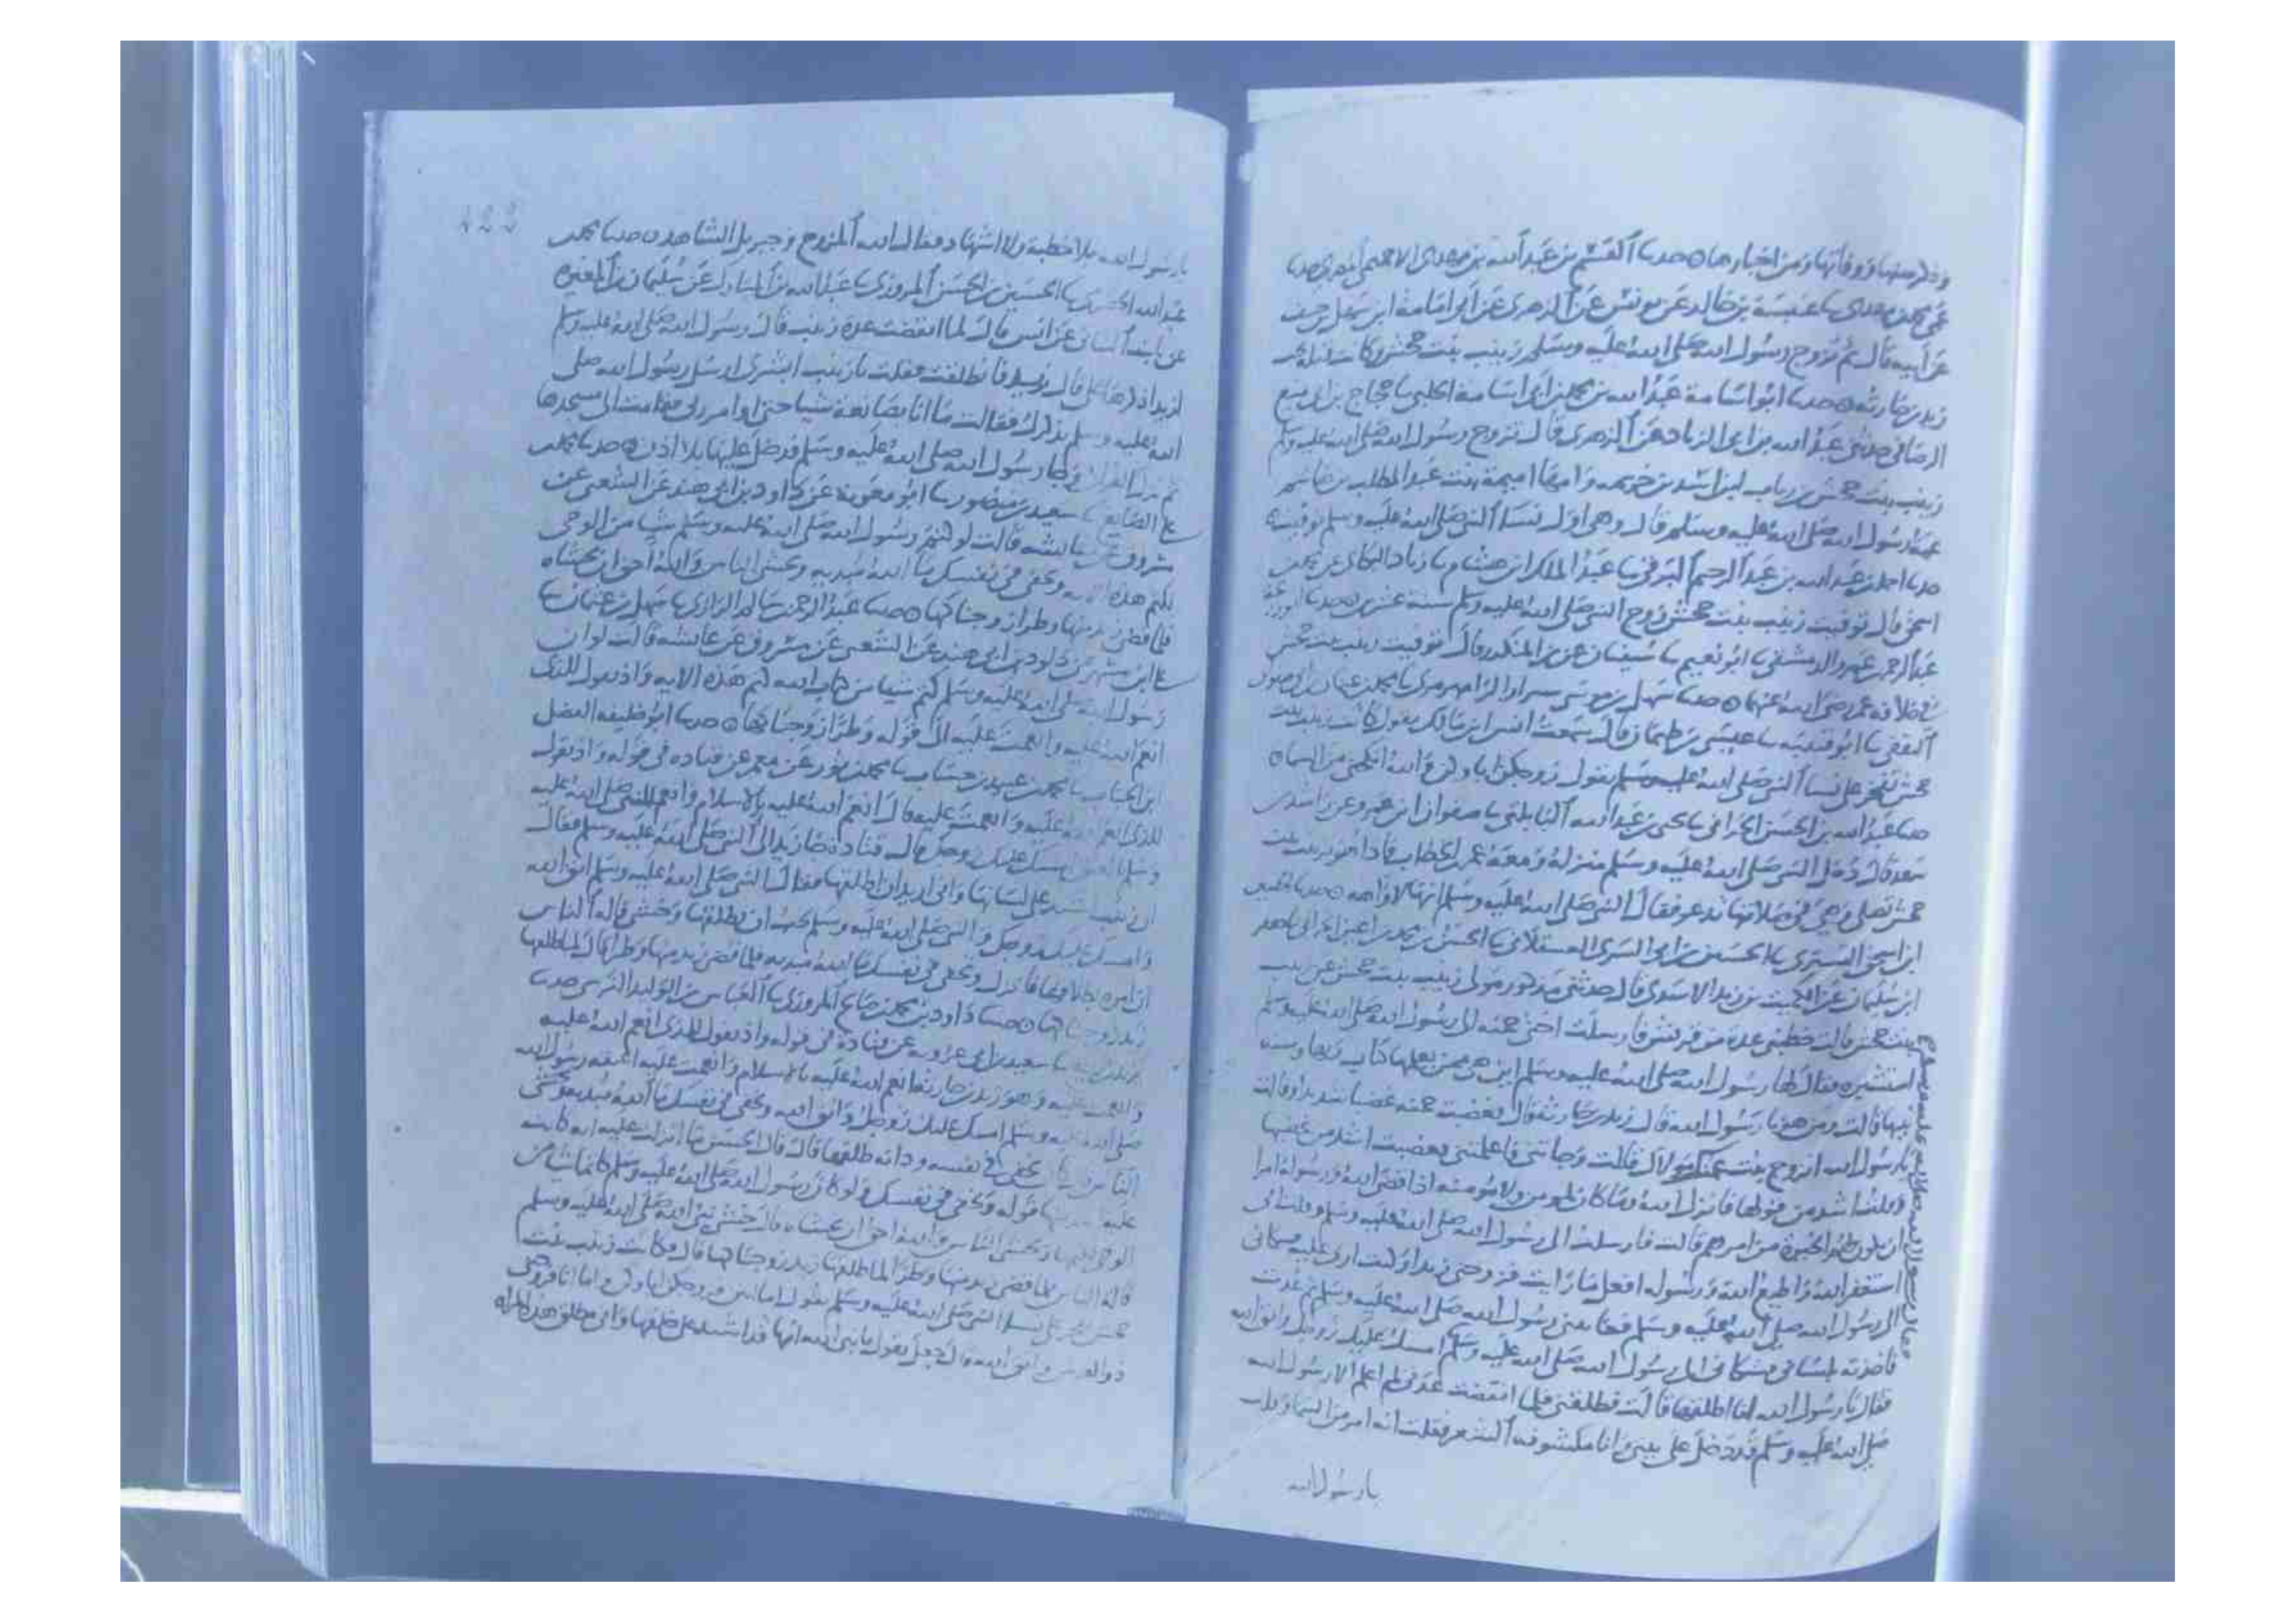 وذكر سنها ووفاتها ومن اخبارها حدثنا القسم بن عبد الله بن مهدى الاخميمى
عمى محمد بن مهدى نا عنبسة بن خالد عن يونس عن الزهرى عن ابى امامة ابن سهل بن حنيف
عن ابيه قال ثم تزوج رسول الله صلى الله عليه وسلم زينب بنت جحش وكانت قبله عند
زيد بن حارثه حدثنا ابو اسامة عبد الله بن محمد بن ابى اسامة الحلبى نا حجاج بن ابى منيع
الرصافى حدثنى عبد الله بن ابى الزناد عن الزهرى قال تزوج رسول الله صلى الله عليه وسلم
زينب بنت جحش بن رياب بن اسد بن خزيمه وامها اميمة بنت عبد المطلب بن هاشم
عمة رسول الله صلى الله عليه وسلم قال وهى اول نسا النبى صلى الله عليه وسلم توفيت
حدثنا احمد بن عبد الله بن عبد الرحيم البرقى نا عبد الملك ابن هشام نا زياد البكاى عن محمد
اسحق قال توفيت زينب بنت جحش زوج النبى صلى الله عليه وسلم سنة عشرين حدثنا ابو زرعة
عبد الرحمن بن عمرو الدمشقى نا ابو نعيم نا سفيان عن بن المنكدر قال توفيت زينب بنت جحش
فى خلافة عمر رضى الله عنهما حدثنا سهل بن موسى الرامهرمزى نا محمد بن عثمان
الثقفى نا ابو قتيبه نا عيسى بن طهمان قال سمعت انس ابن مالك يقول كانت زينب بنت
جحش تفخر على نسا النبى صلى الله عليه وسلم تقول زوجكن اباوكن والله انكحنى من السماء
حدثنا عبد الله بن الحسن الحرانى نا يحيى بن عبد الله البابلتى نا صفوان ابن عمرو عن راشد بن
سعد قال دخل النبى صلى الله عليه وسلم منزله ومعه عمر بن الخطاب فاذا هو بزينب بنت
جحش تصلى وهى فى صلاتها تدعو فقال النبى صلى الله عليه وسلم انها لاواهه حدثنا الحسين
ابن اسحق التسترى نا الحسين بن ابى السرى العسقلانى نا الحسن بن محمد بن اعين الحرانى نا حفص
ابن سليمان عن الكميت بن زيد الاسدى قال حدثنى مذكور مولى زينب بنت جحش عن زينب
بنت جحش قالت خطبنى عدة من قريش فارسلت اختى حمنه الى رسول الله صلى الله عليه وسلم
استشيره فقال لها رسول الله صلى الله عليه وسلم اين هى ممن يعلمها كتاب ربها وسنه
نبيها قالت ومن هو يا رسول الله قال زيد بن حارثة قال فغضبت حمنه غضبا شديدا وقالت
يا رسول الله اتزوج بنت عمتك مولاك قالت وجاتنى فاعلمتنى فغضبت اشد من غضبها
وقلت اشد من قولها فانزل الله وما كان لمومن ولا مومنه اذا قضى الله ورسوله امرا
ان يكون لهم الخيرة من امرهم قالت فارسلت الى رسول الله صلى الله عليه وسلم وقلت انى
استغفر الله واطيع الله ورسوله افعل ما رايت فزوجنى زيدا وكنت ارى عليه فشكانى
الى رسول الله صلى الله عليه وسلم فعاتبنى رسول الله صلى الله عليه وسلم ثم عدت
فاخذته بلسانى فشكانى الى رسول الله صلى الله عليه وسلم امسك عليك زوجك واتق الله
فقال يا رسول الله انا اطلقها قالت فطلقنى فلما انقضت عدتى لم اعلم الا رسول الله
صلى الله عليه وسلم قد دخل على بيتى وانا مكشوفه الشعر فقلت انه امر من السما وقلت
يا رسول الله
422
يا رسول الله بلا خطبة ولا اشهاد فقال الله المزوج وجبريل الشاهد حدثنا محمد بن
عبد الله الحضرمى نا الحسين بن الحسن المروزى نا عبد الله بن المبارك عن سليمان بن المغيره
عن ثابت البنانى عن انس قال لما انقضت عدة زينب قال رسول الله صلى الله عليه وسلم
لزيد اذكرها على قال زيد فانطلقت فقلت يا زينب ابشرى ارسل رسول الله صلى
الله عليه وسلم يذكرك فقالت ما انا بصانعة شيا حتى اوامر ربى فقامت الى مسجدها
ثم نزل القران وجا رسول الله صلى الله عليه وسلم فدخل عليها بلا اذن حدثنا محمد بن
على الصايغ نا سعيد بن منصور نا ابو معوية عن داود بن ابى هند عن الشعبى عن
مسروق عن عايشه قالت لو كتم رسول الله صلى الله عليه وسلم شيا من الوحى
لكتم هذه الايه وتخفى فى نفسك ما الله مبديه وتخشى الناس والله احق ان تخشاه
فلما قضى زيد منها وطرا زوجناكها حدثنا عبد الرحمن بن سالم الرازى نا سهل بن عثمان نا
على ابن مسهر عن داود بن ابى هند عن الشعبى عن مسروق عن عايشه قالت لو ان
رسول الله صلى الله عليه وسلم كتم شيا من كتاب الله لكتم هذه الايه واذ تقول للذى
انعم الله عليه وانعمت عليه الى قوله وطرا زوجناكها حدثنا ابو خليفه الفضل
ابن الحباب نا محمد بن عبيد بن حساب نا محمد بن ثور عن معمر عن قتاده فى قوله واذ تقول
للذى انعم الله عليه وانعمت عليه قال انعم الله عليه بالاسلام وانعم النبى صلى الله عليه
وسلم امسك عليك زوجك قال قتادة جا زيد الى النبى صلى الله عليه وسلم فقال
ان زينب اشتد على لسانها وانى اريد ان اطلقها فقال النبى صلى الله عليه وسلم اتق الله
وامسك عليك زوجك والنبى صلى الله عليه وسلم يحب ان يطلقها وخشى قاله الناس
ان امره بطلاقها فانزل وتخفى فى نفسك ما الله مبديه فلما قضى زيد منها وطرا قال لما طلقها
زيد زوجناكها حدثنا داود بن محمد بن صالح المروزى نا العباس بن الوليد النرسى حدثنا
يزيد بن زريع نا سعيد بن ابى عروبه عن قتادة فى قوله واذ تقول للذى انعم الله عليه
وانعمت عليه وهو زيد بن حارثة انعم الله عليه بالاسلام وانعمت عليه اعتقه رسول الله
صلى الله عليه وسلم امسك عليك زوجك واتق الله وتخفى فى نفسك ما الله مبديه وتخشى
الناس قال يخفى فى نفسه ود انه طلقها قال قال الحسن ما انزلت عليه ايه كانت
عليه اشد منها قوله وتخفى فى نفسك ولو كان رسول الله صلى الله عليه وسلم كاتما شيا من
الوحى لكتمها وتخشى الناس والله احق ان تخشاه قال خشى نبى الله صلى الله عليه وسلم
قالة الناس فلما قضى زيد منها وطرا لما طلقها زيد زوجناكها قال وكانت زينب بنت
جحش تفخر على نسا النبى صلى الله عليه وسلم تقول اما انتن فزوجكن اباوكن واما انا فزوجنى
ذو العرش واتق الله قال جعل يقول يا نبى الله انها قد اشتد على خلقها وانى مطلق هذه المراه